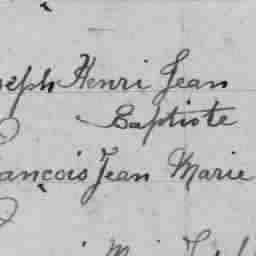 seph Henri Jean
Baptiste
ançois Jean Marie